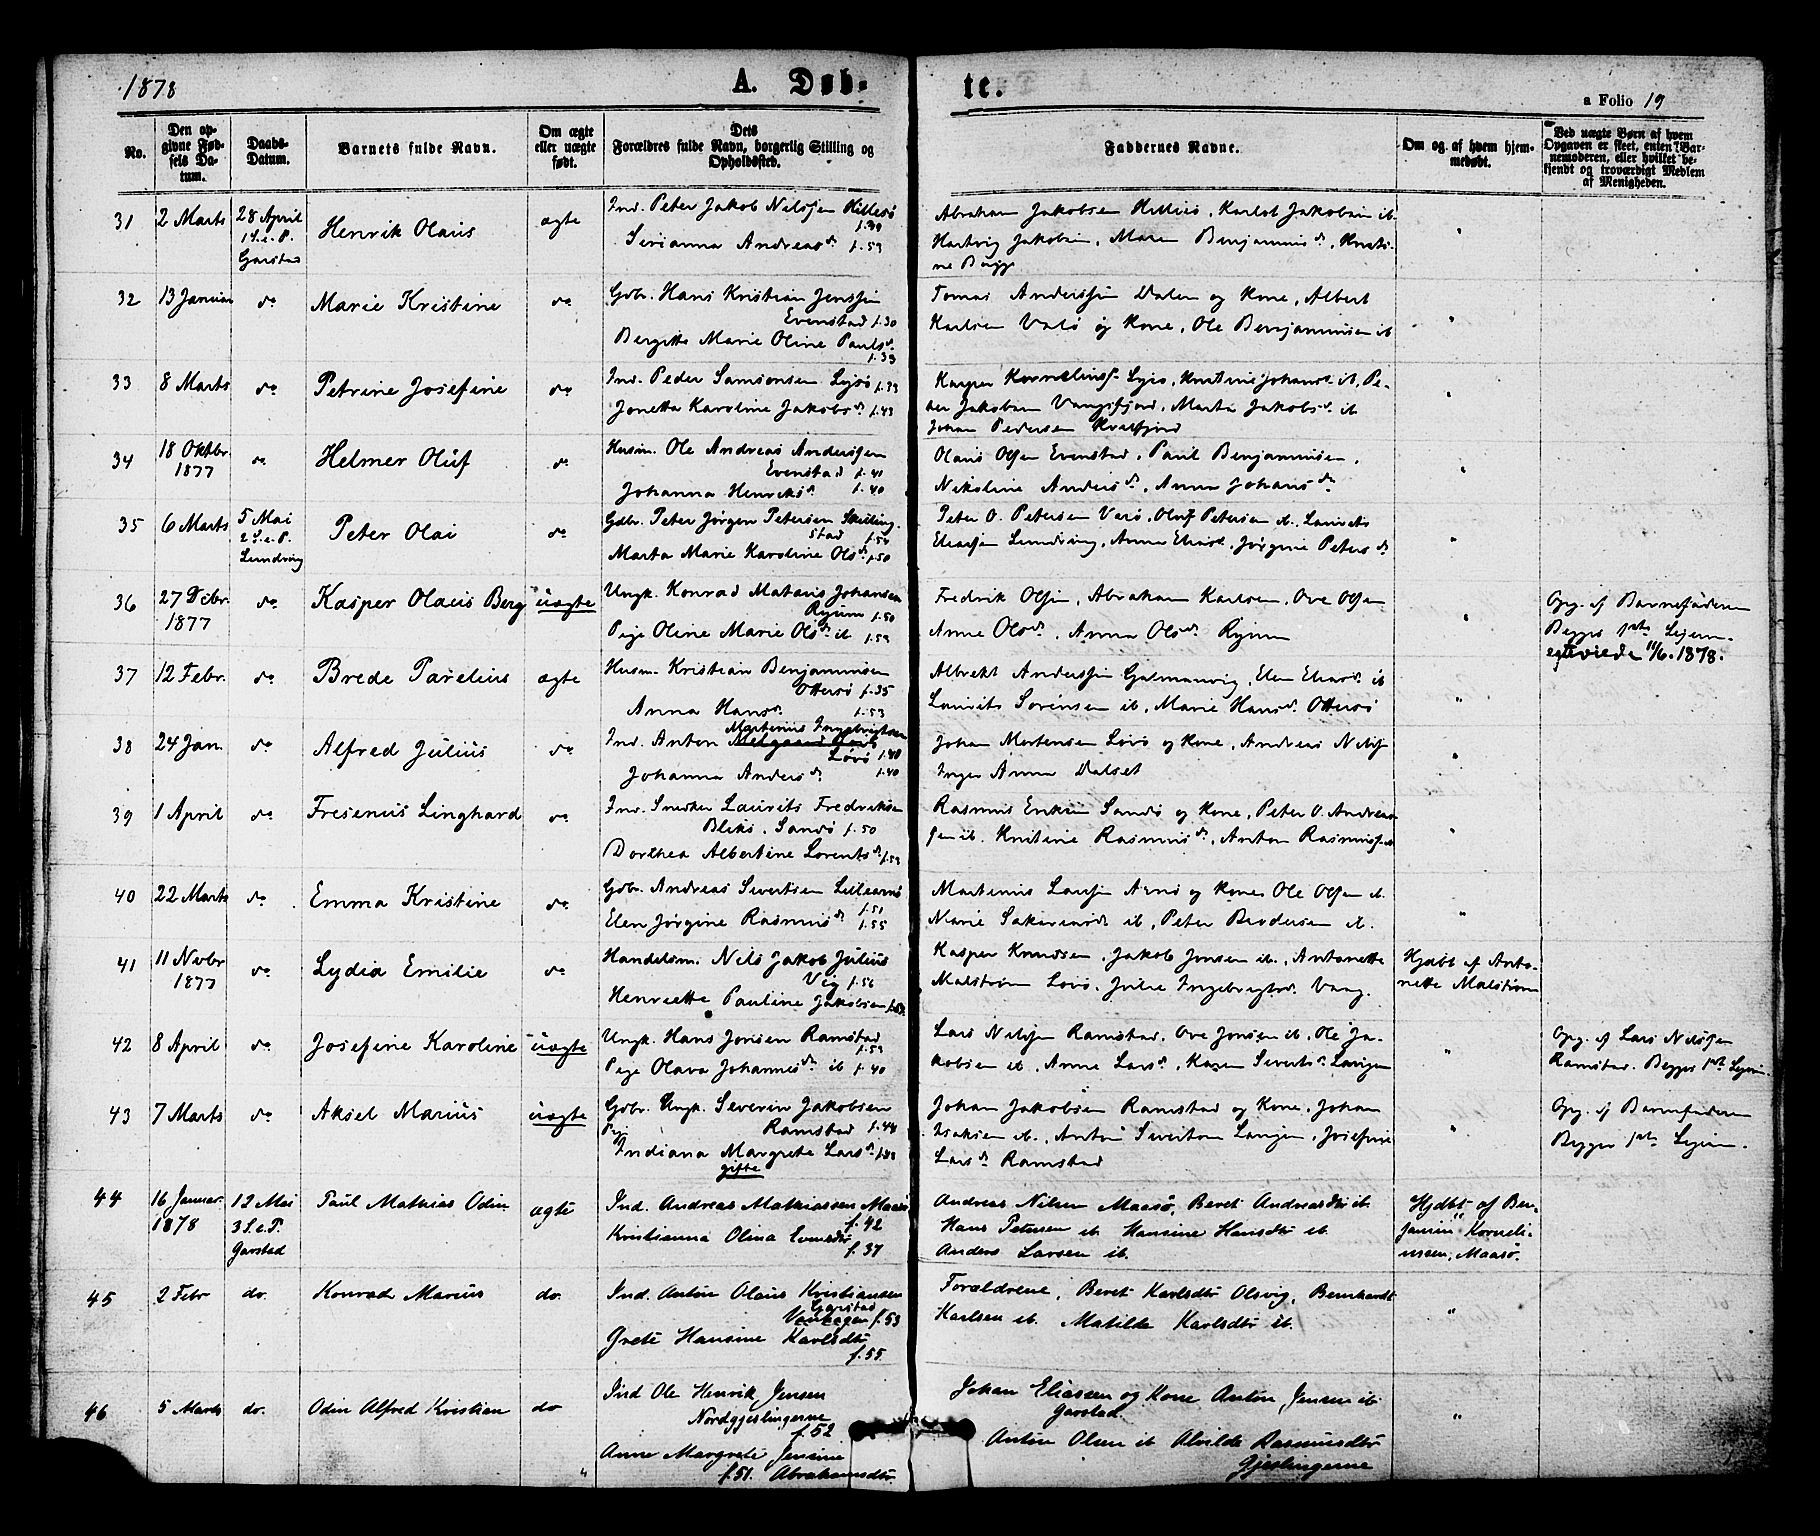 1878
A. Døb-
te.
a Folio 19
No.
Den op-
givne Fød-
sels Da-
tum.
Daabs-
Datum.
Barnets fulde Navn.
Om ægte
eller uægte
født.
Dets
Forældres fulde Navn, borgerlig Stilling og
Opholdssted.
Faddernes Navne.
Om og af hvem hjem-
medøbt.
Ved uægte Børn af hvem
Opgaven er skeet, enten Bar-
nemoderen, eller hvilket be-
kjendt og troværdigt Medlem
af Menigheden.
31 2 Marts 28 April Henrik Olaus ægte Ind. Peter Jakob Nilssen
1 S. e. P.
Garstad
Serianna Andreasdr f. 53
Abraham Jakobsen, Jakobsen ib.
Hartvig Jakobsen, Maren Benjaminsdr,
32 13 Januar do Marie Kristine do Gdbr. Hans Kristian Jenssen
Evenstad f. 30
Bergitte Marie Oline Paulsdr
f. 33
Tomas Anderssen Dalen og Kone, Albert
Karlsen Valø og Kone, Ole Benjaminsen ib
33 8 Marts do Petrine Josefine do Ind. Peder Samsonsen
Jonetta Karoline Jakobsdr f. 43
Kasper, Kristine Johansdr ib, Pe-
der Jakobsen, Marta Jakobsdr ib
Johan Pedersen
34 18 Oktbr 1877 do Helmer Oluf do Husm. Ole Andreas Anderssen
Evenstad f. 41
Johanna Henriksdr f. 40
Olaus Olsen Evenstad, Paul Benjaminsen,
Nikoline Andersdr, Anna Johansdr
35 6 Marts 5 Mai Peter Olai do Gdbr. Peter Jørgen Petersen Skilling-
2 S. e. P.
Lundring
stad
Marta Marie Karoline Olsdr f. 50
Peter O. Petersen, Oluf Petersen ib, Laurits
Eliassen Lundring, Anna Eliasdr, Jørgine Petersdr
36 27 Debr. 1877 do Kasper Olaus Berg uægte Ungk. Konrad Mataus Johansen
Ryum f. 50
Pige Oline Marie Olsdr ib f. 53
Fredrik Olsen, Abraham Karlsen, Ove Olsen
Anne Olsdr, Anna Olsdr Ryum
Opg. af Barnefaderen
Begges 1ste Leierm.
egteviede 11/6. 1878.
37 12 Febr. do Brede Parelius ægte Husm. Kristian Benjaminsen
Ottersø f. 35
Anna Hansdr f. 53
Albrekt Anderssen, Elen Eliasdr ib
Laurits Sørensen ib, Marie Hansdr Ottersø
38 24 Jan. do Alfred Julius do Ind. Anton Martinus Ingebrigtsen
Løvø f. 48
Johanna Andersdr f. 40
Johan Mortensen Løvø og Kone, Andreas
Inger Anna Dalset
39 1 April do Fresenius Linghard do Ind. Snedker Laurits Fredriksen
Bliks, Sandø f. 50
Dorthea Albertine Lorentsdr f. 53
Rasmus Eriksen Sandø og Kone, Peter O. Andreas-
sen ib. Kristine Rasmusdr, Anton Rasmussen
40 22 Marts do Emma Kristine do Gdbr. Andreas Sivertsen
f. 51
Elen Jørgine Rasmusdr f. 55
Martinus Larssen og Kone Ole Olsen ib.
Marie Sakariasdr ib, Peter Brodersen ib.
41 11 Novbr 1877 do Lydia Emilie do Handelsm. Nils Jakob Julius
Vig f. 56
Henriette Pauline Jakobsen
Kasper Knudsen, Jakob Jensen ib., Antonette
Malstrøm Løvø, Julie Ingebrigtsdr Vaag.
Hjdbt af Anto-
nette Malstrøm
42 8 April do Josefine Karoline uægte Ungk. Hans Jonsen Ramstad
f. 53
Pige Olava Johannesdr ib f. 40
Lars Nilssen Ramstad, Ove Jonsen ib, Ole Ja-
kobsen ib, Anne Larsdr, Karen Sivertsdr Langen
Opg. af Lars Nilssen
Ramstad. Begges 1ste Leierm.
43 7 Marts do Aksel Marius uægte Gdbr. Ungk. Severin Jakobsen
Ramstad f. 44
Pige Indiana Margrete Larsdr
gifte
Johan Jakobsen Ramstad og Kone, Johan
Isaksen ib, Anton Sivertsen Langen, Josefine
Larsdr Ramstad
Opg. af Barnefaderen
Begges 1ste Leierm.
44 16 Januar 1878 12 Mai Paul Mathias Odin ægte Ind. Andreas Mathiassen Maasø
3 S. e. P.
Garstad
f. 42
Kristianna Olina
f. 37
Andreas Nilsen Maasø, Beret Andreasdtr ib.
Hans Petersen ib Hansine Hansdtr ib.
Anders Larsen ib.
Hjdbt af Ben-
jamin Korneli-
ussen, Maasø.
45 2 Febr do. Konrad Marius do. Ind. Anton Olaus Kristiansen
Garstad
f. 53
Grete Hansine Karlsdtr
f. 55
Forældrene, Beret Karlsdtr Olsvig, Bernhardt
Karlsen ib. Matilde Karlsdtr ib.
46 5 Marts do. Odin Alfred Kristian do Ind Ole Henrik Jensen
Nordgjeslingerne
f. 52
Anne Margrete Jensine
f. 51. Abrahamsdtr
Johan Eliassen og Kone Anton Jensen ib
Garstad.
Anton Olsen ib Alvilde Rasmusdtr
Gjeslingerne